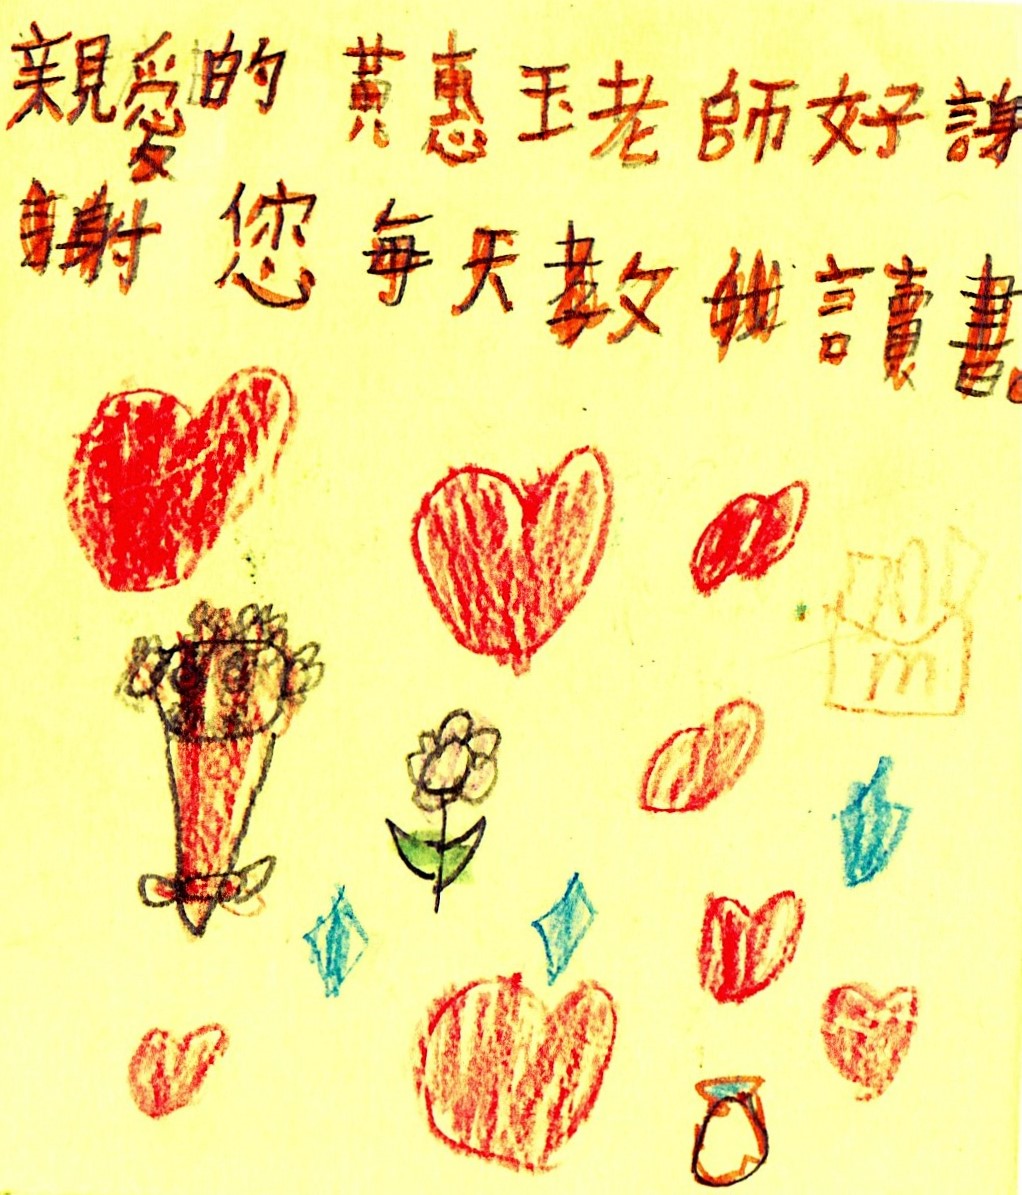 親愛的黃惠玉老師好謝
謝您每天教我讀書。